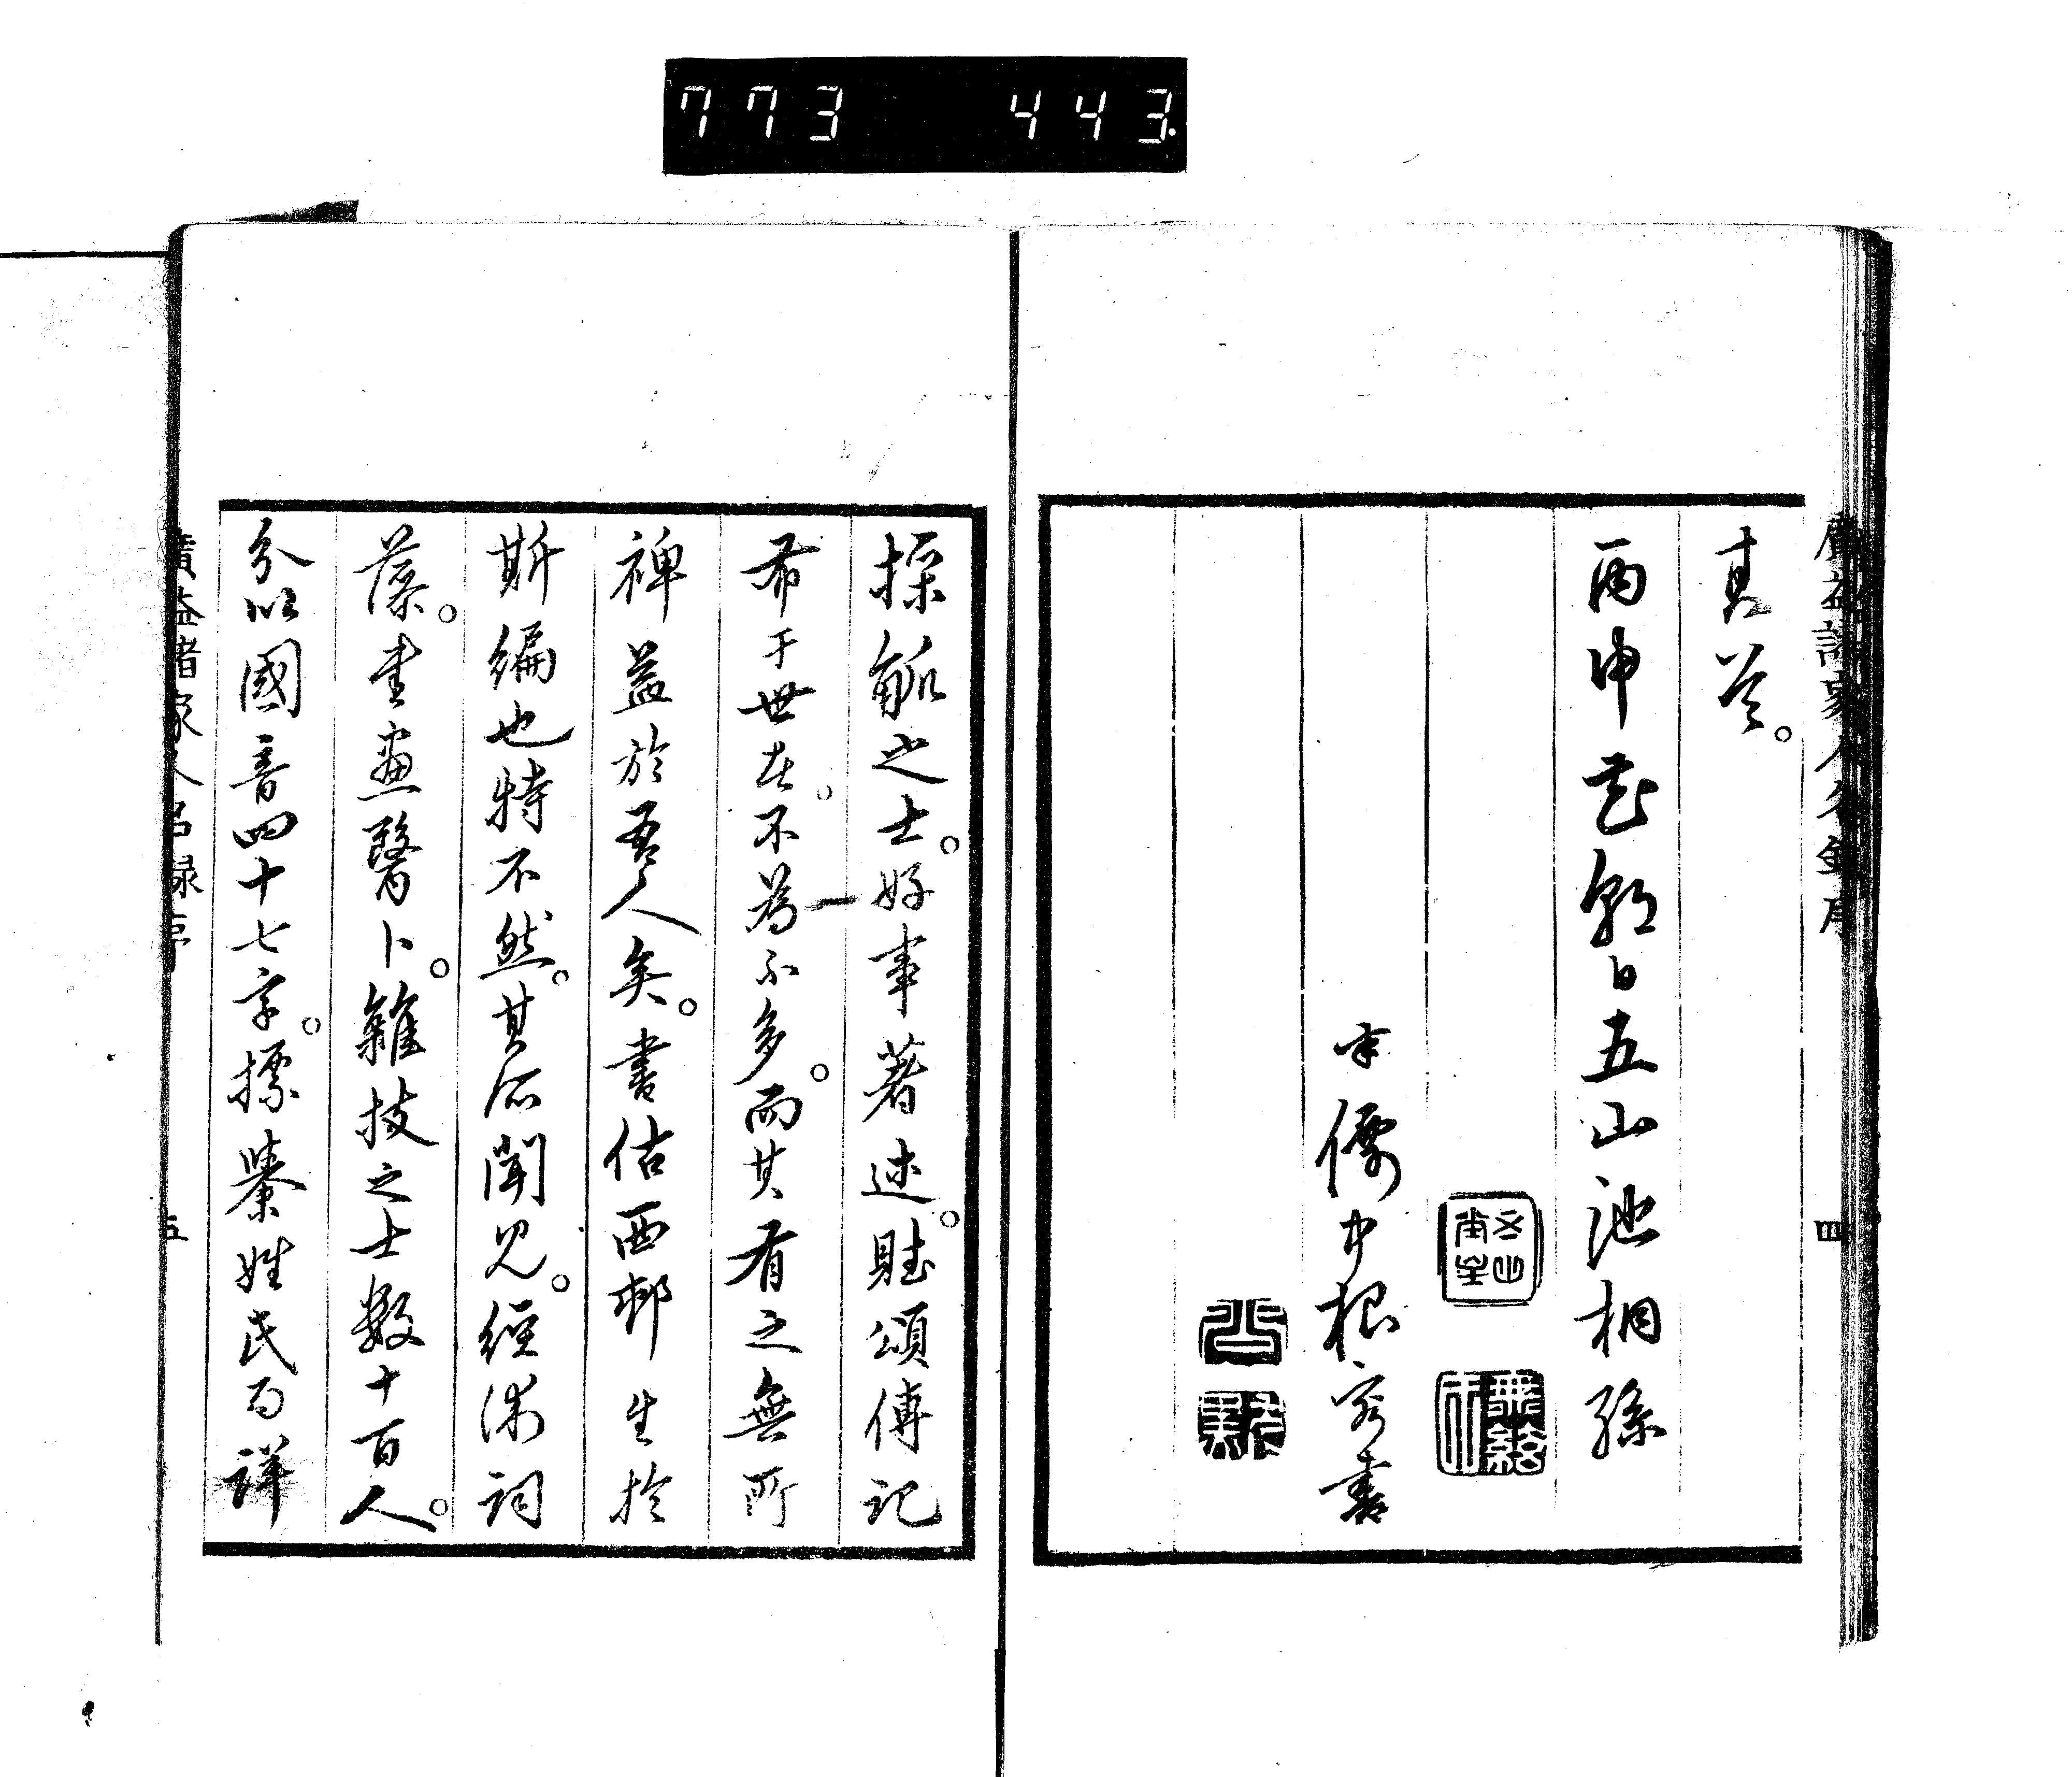 773 443
廣益諸家人名錄序
四
真并。
丙申花朝日五山池桐孫
半僊中根容書
操觚之士。好事著述。賦頌傳記
希于世在。不為不多。而其有之無所
裨益於吾人矣。書估西邨生於
斯編也特不然。其所聞見。經術詞
藻。書畫醫卜。雜技之士數十百人。
分以國音四十七字。標纂姓氏而詳
廣益諸家人名録序
五